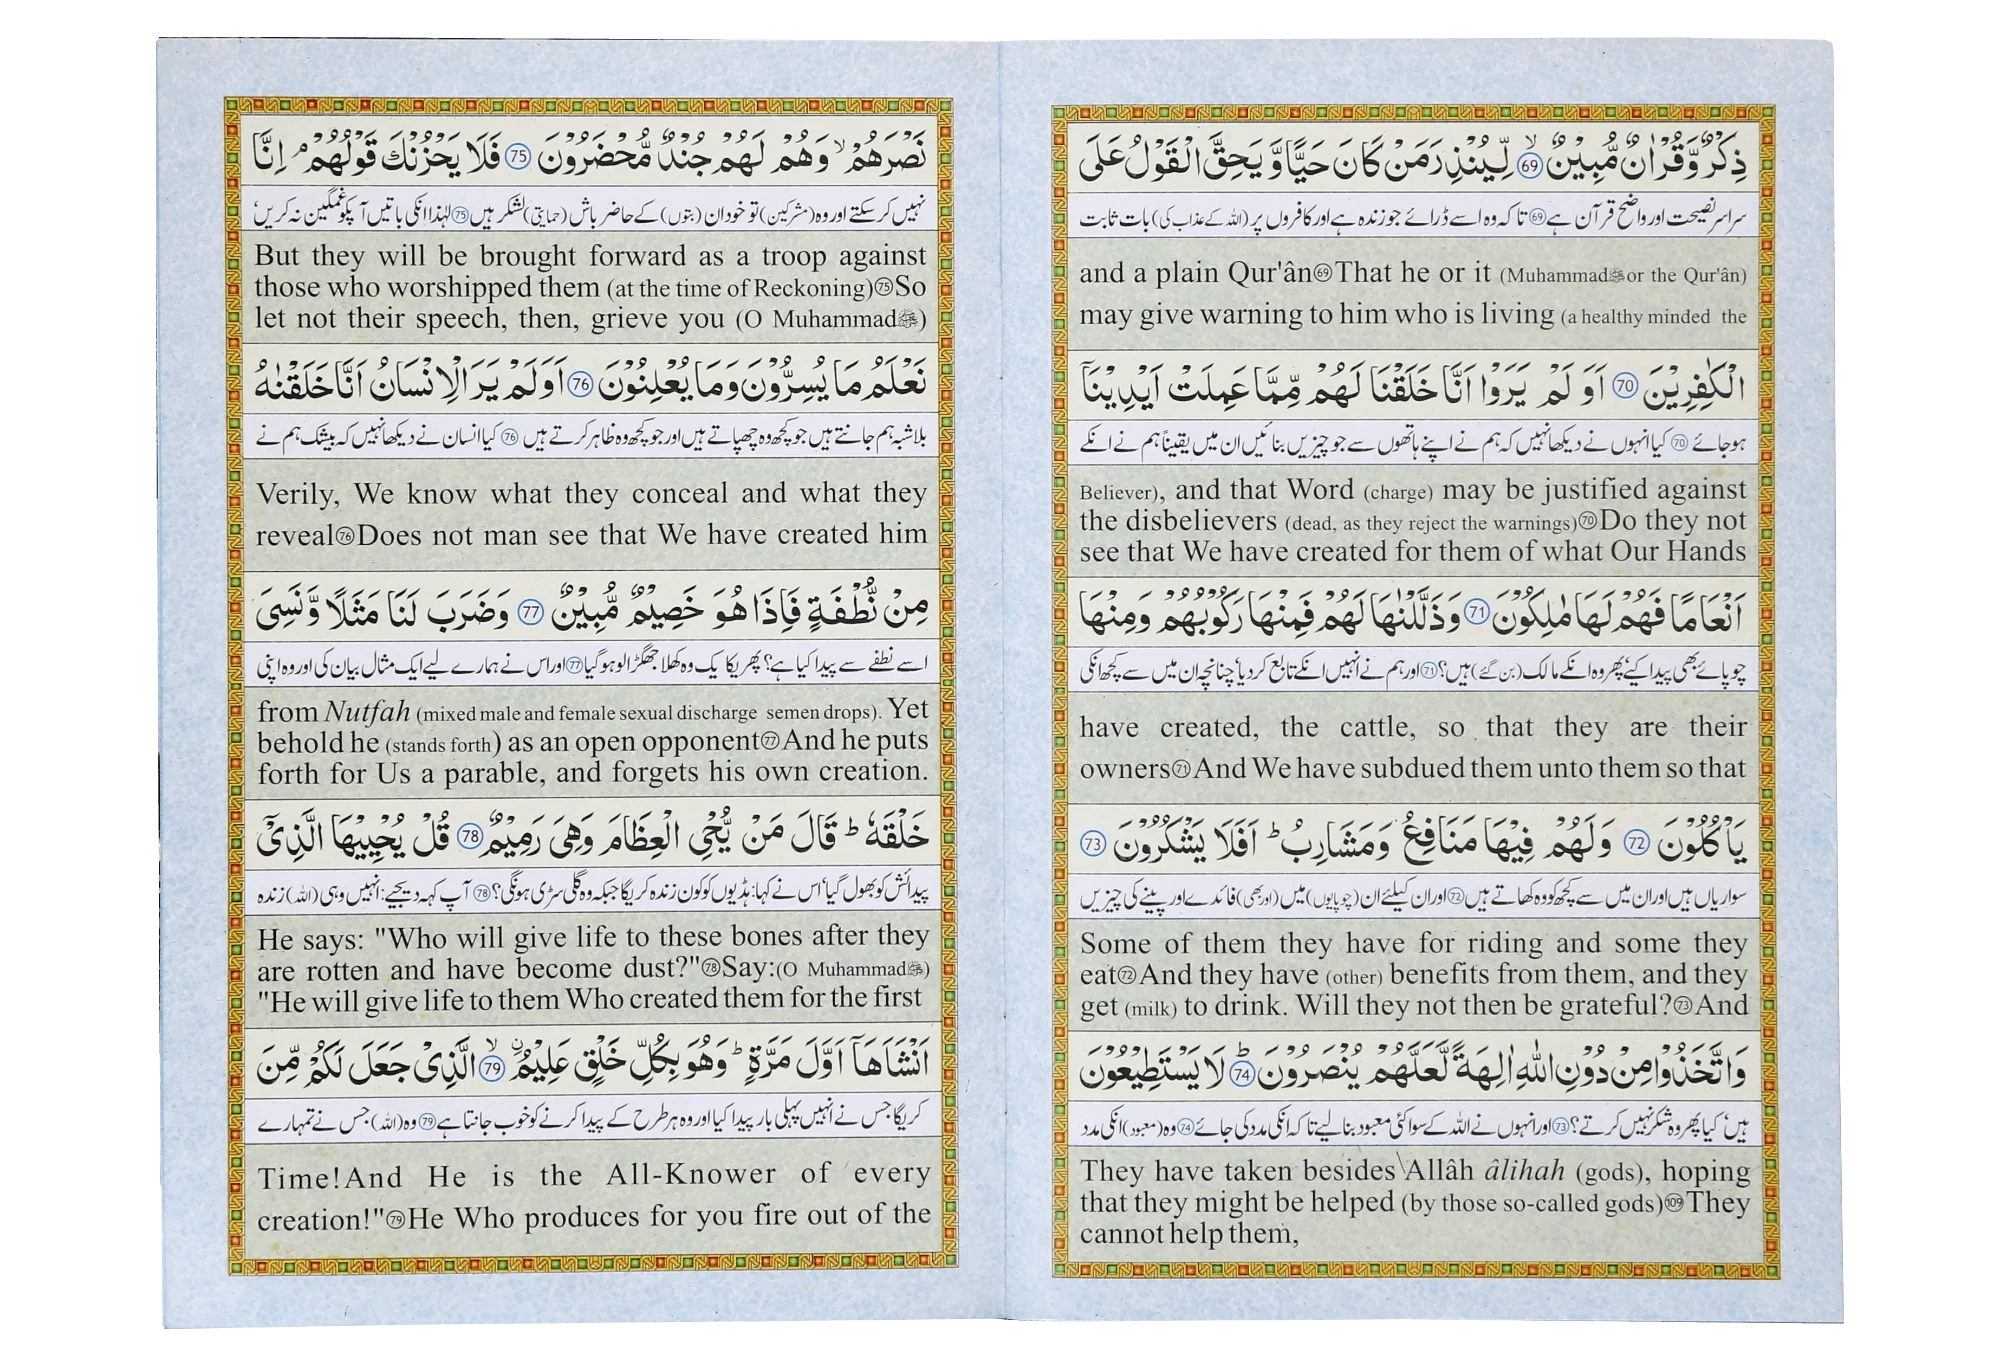 ذِكْرٌ وَّقُرْاٰنٌ مُّبِيْنٌ ۙ 69 لِّيُنْذِرَ مَنْ كَانَ حَيًّا وَّ يَحِقَّ الْقَوْلُ عَلَى
سراسر نصیحت اور واضح قرآن ہے 69 تاکہ وہ اسے ڈرائے جو زندہ ہے اور کافروں پر (اللہ کے عذاب کی) بات ثابت
and a plain Qur'ân69That he or it (Muhammadﷺor the Qur'ân)
may give warning to him who is living (a healthy minded the
الْكٰفِرِيْنَ 70 اَوَ لَمْ يَرَوْا اَنَّا خَلَقْنَا لَهُمْ مِّمَّا عَمِلَتْ اَيْدِيْنَاۤ
ہو جائے 70 کیا انہوں نے دیکھا نہیں کہ ہم نے اپنے ہاتھوں سے جو چیزیں بنائیں ان میں یقیناً ہم نے انکے
Believer), and that Word (charge) may be justified against
the disbelievers (dead, as they reject the warnings)70Do they not
see that We have created for them of what Our Hands
اَنْعَامًا فَهُمْ لَهَا مٰلِكُوْنَ 71 وَذَلَّلْنٰهَا لَهُمْ فَمِنْهَا رَكُوْبُهُمْ وَمِنْهَا
چوپائے بھی پیدا کیے' پھر وہ انکے مالک (بن گئے) ہیں؟ 71 اور ہم نے انہیں انکے تابع کر دیا' چنانچہ ان میں سے کچھ انکی
have created, the cattle, so that they are their
owners71And We have subdued them unto them so that
يَاْكُلُوْنَ 72 وَلَهُمْ فِيْهَا مَنَافِعُ وَمَشَارِبُ ؕ اَفَلَا يَشْكُرُوْنَ 73
سواریاں ہیں اور ان میں سے کچھ کو وہ کھاتے ہیں 72 اور ان کیلئے ان (چوپایوں) میں (اور بھی) فائدے اور پینے کی چیزیں
Some of them they have for riding and some they
eat72And they have (other) benefits from them, and they
get (milk) to drink. Will they not then be grateful?73And
وَاتَّخَذُوْا مِنْ دُوْنِ اللّٰهِ اٰلِهَةً لَّعَلَّهُمْ يُنْصَرُوْنَ ؕ 74 لَا يَسْتَطِيْعُوْنَ
ہیں' کیا پھر وہ شکر نہیں کرتے؟ 73 اور انہوں نے اللہ کے سوا کئی معبود بنا لیے تاکہ انکی مدد کی جائے 74 وہ (معبود) انکی مدد
They have taken besides Allâh âlihah (gods), hoping
that they might be helped (by those so-called gods)109They
cannot help them,
نَصْرَهُمْ ۙ وَهُمْ لَهُمْ جُنْدٌ مُّحْضَرُوْنَ 75 فَلَا يَحْزُنْكَ قَوْلُهُمْ ۘ اِنَّا
نہیں کر سکتے اور وہ (مشرکین) تو خود ان (بتوں) کے حاضر باش (حمایتی) لشکر ہیں 75 لہٰذا انکی باتیں آپکو غمگین نہ کریں'
But they will be brought forward as a troop against
those who worshipped them (at the time of Reckoning)75So
let not their speech, then, grieve you (O Muhammadﷺ)
نَعْلَمُ مَا يُسِرُّوْنَ وَمَا يُعْلِنُوْنَ 76 اَوَلَمْ يَرَ الْاِنْسَانُ اَنَّا خَلَقْنٰهُ
بلاشبہ ہم جانتے ہیں جو کچھ وہ چھپاتے ہیں اور جو کچھ وہ ظاہر کرتے ہیں 76 کیا انسان نے دیکھا نہیں کہ بیشک ہم نے
Verily, We know what they conceal and what they
reveal76Does not man see that We have created him
مِنْ نُّطْفَةٍ فَاِذَا هُوَ خَصِيْمٌ مُّبِيْنٌ 77 وَضَرَبَ لَنَا مَثَلًا وَّنَسِيَ
اسے نطفے سے پیدا کیا ہے؟ پھر یکایک وہ کھلا جھگڑالو ہو گیا 77 اور اس نے ہمارے لیے ایک مثال بیان کی اور وہ اپنی
from Nutfah (mixed male and female sexual discharge semen drops). Yet
behold he (stands forth) as an open opponent77And he puts
forth for Us a parable, and forgets his own creation.
خَلْقَهٗ ؕ قَالَ مَنْ يُّحْيِ الْعِظَامَ وَهِيَ رَمِيْمٌ 78 قُلْ يُحْيِيْهَا الَّذِيْۤ
پیدائش کو بھول گیا' اس نے کہا: ہڈیوں کو کون زندہ کریگا جبکہ وہ گلی سڑی ہونگی؟ 78 آپ کہہ دیجیے: انہیں وہی (اللہ) زندہ
He says: "Who will give life to these bones after they
are rotten and have become dust?"78Say:(O Muhammadﷺ)
"He will give life to them Who created them for the first
اَنْشَاَهَاۤ اَوَّلَ مَرَّةٍ ؕ وَهُوَ بِكُلِّ خَلْقٍ عَلِيْمُ ۙ 79 الَّذِيْ جَعَلَ لَكُمْ مِّنَ
کریگا جس نے انہیں پہلی بار پیدا کیا اور وہ ہر طرح کے پیدا کرنے کو خوب جانتا ہے 79 وہ (اللہ) جس نے تمہارے
Time!And He is the All-Knower of every
creation!"79He Who produces for you fire out of the